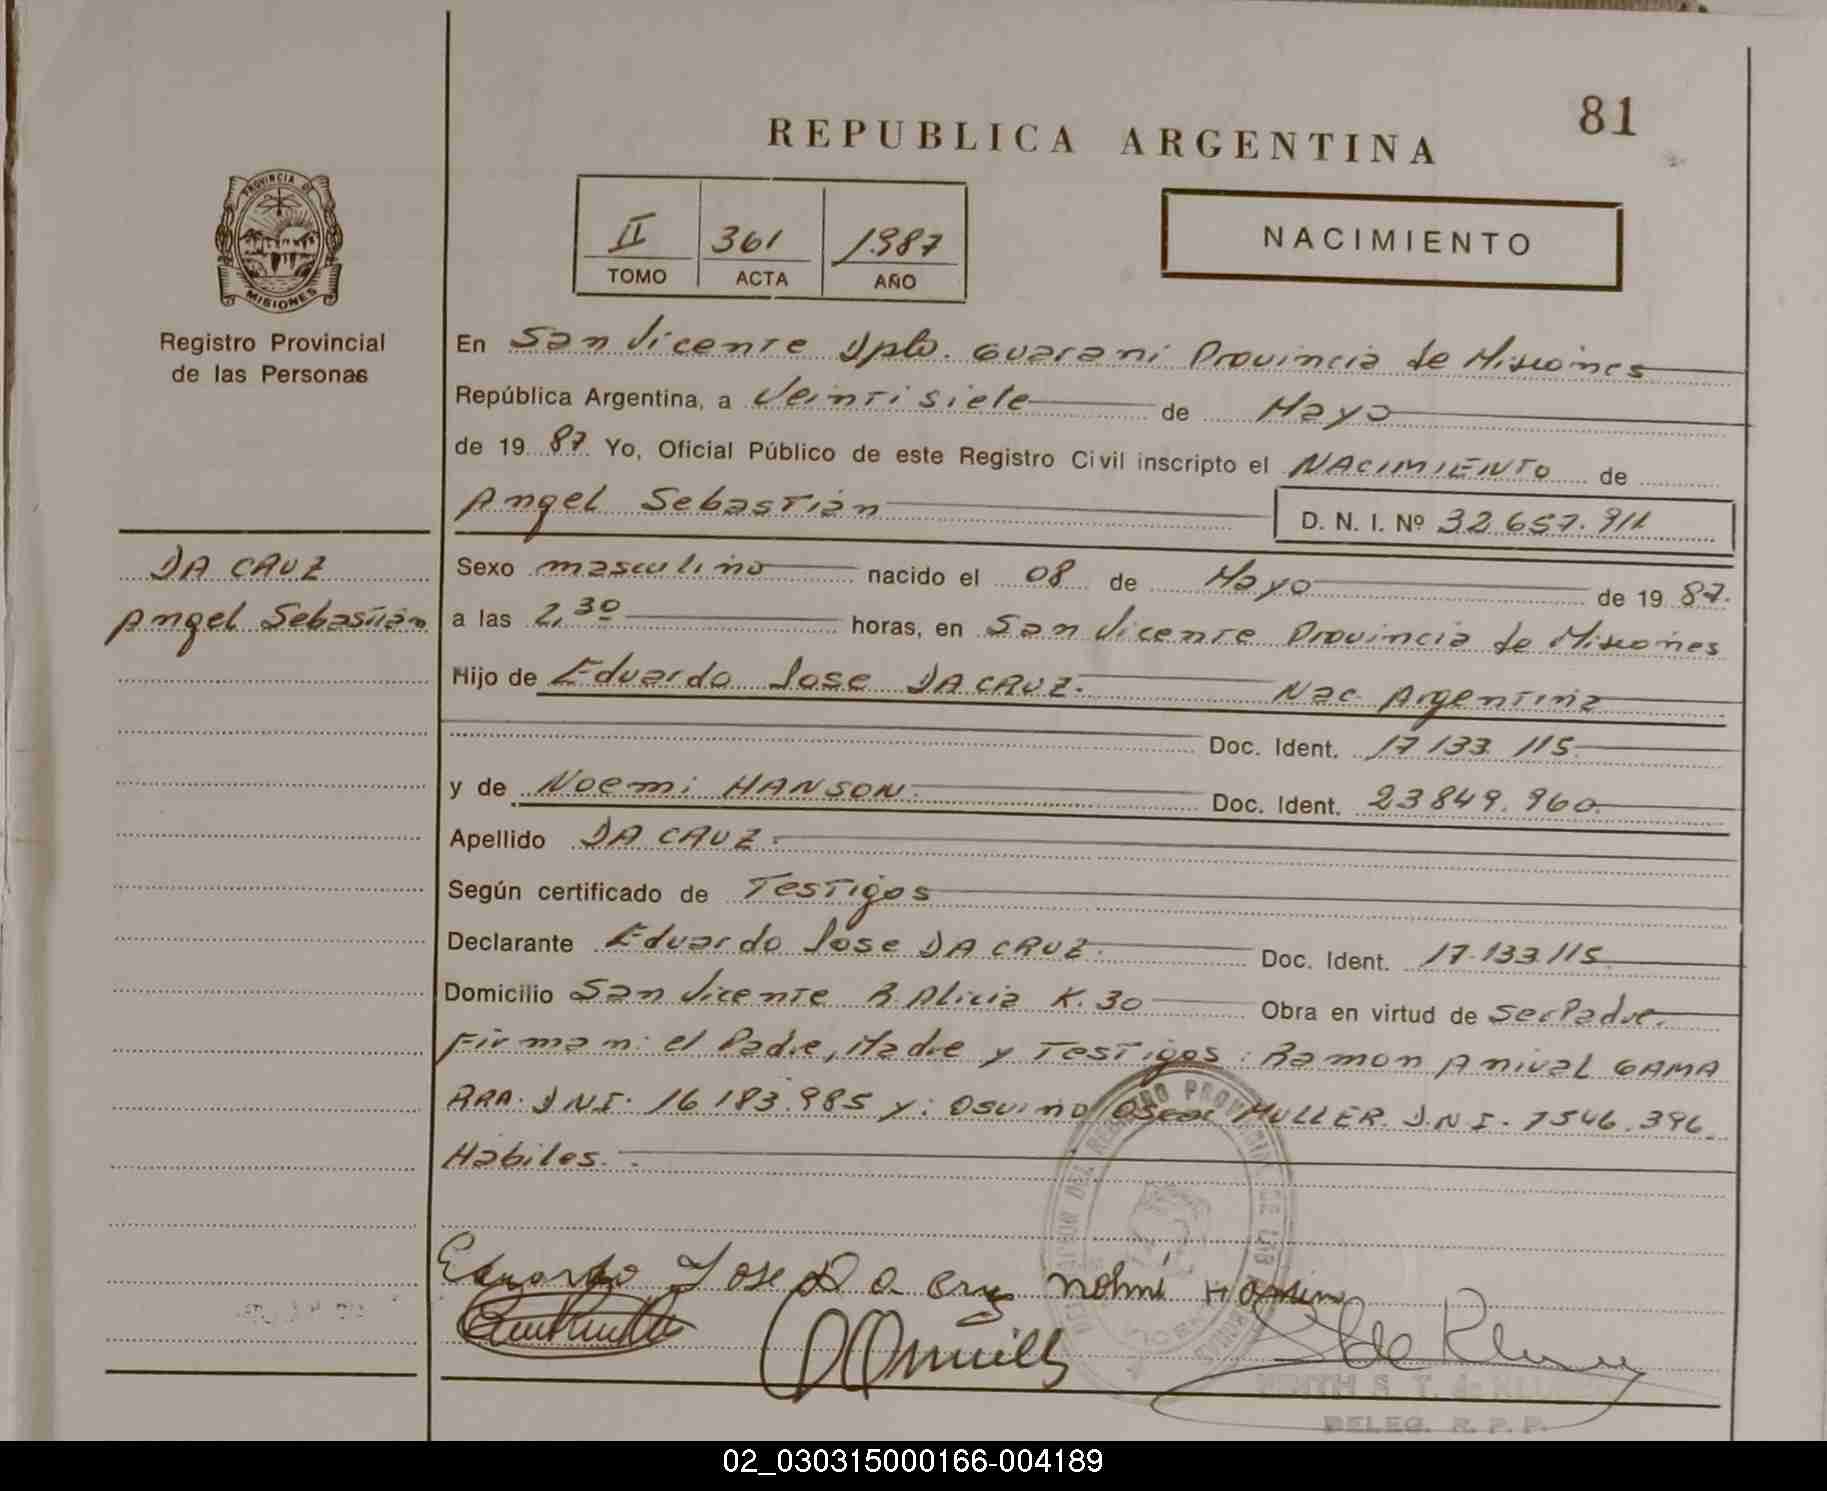 81
REPUBLICA ARGENTINA
PROVINCIA DE
MISIONES
Registro Provincial
de las Personas
II 361 1987
TOMO ACTA AÑO
NACIMIENTO
En San Vicente Dpto. Guarani Provincia de Misiones
República Argentina, a Veintisiete de Mayo
de 19 87. Yo, Oficial Público de este Registro Civil inscripto el NACIMIENTO de
Angel Sebastian D. N. I. Nº 32.657.911
DA CRUZ
Angel Sebastian
Sexo masculino nacido el 08 de Mayo de 19 87.
a las 2,30 horas, en San Vicente Provincia de Misiones
Hijo de Eduardo Jose DA CRUZ. Nac. Argentina
Doc. Ident. 17.133.115.
y de Noemi HANSON. Doc. Ident. 23849.960.
Apellido DA CRUZ.
Según certificado de Testigos
Declarante Eduardo Jose DA CRUZ. Doc. Ident. 17.133.115.
Domicilio San Vicente R. Alicia K. 30 Obra en virtud de ser Padre.
Firman: el Padre, Madre y Testigos: Ramon Anival GAMA
RRA. D.N.I. 16.183.985 y: Osvino Oscar MULLER. D.N.I. 7546.396.
Habiles.
Eduardo Jose Da Cruz Nohmi Hansin
DELEG. R. P. P.
02_030315000166-004189